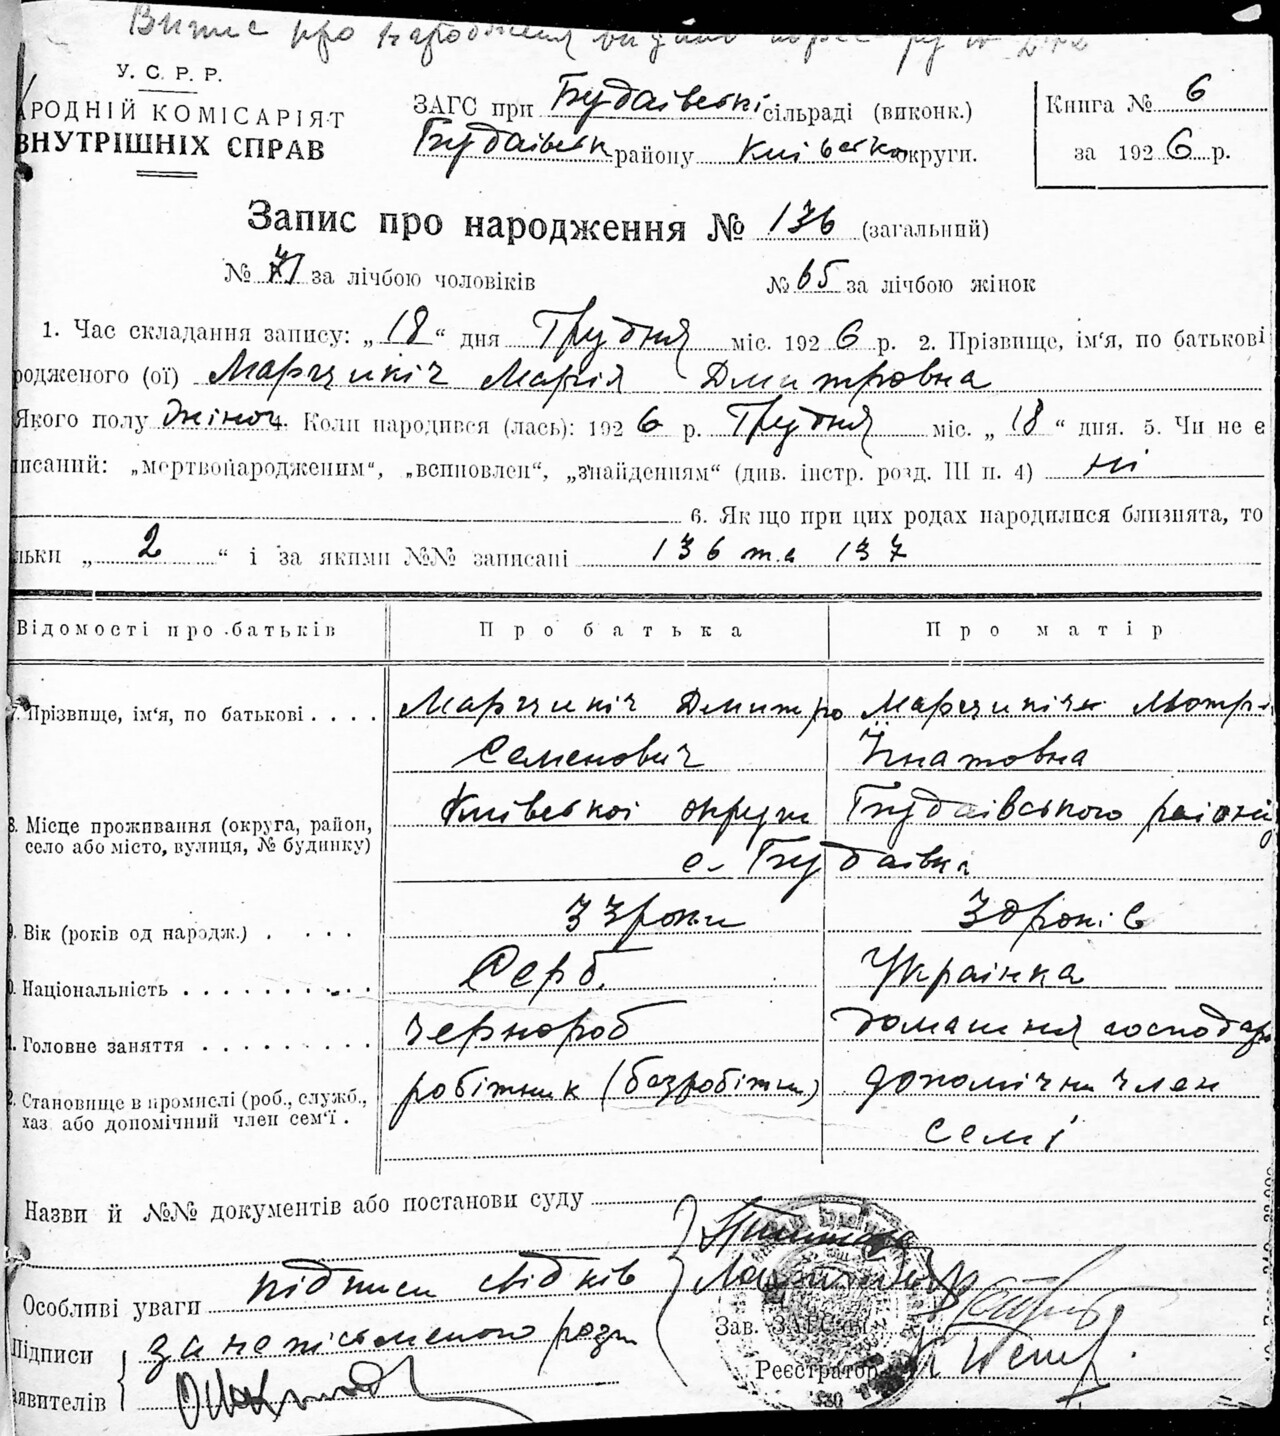 Витис про народження
У. С. Р. Р.
АРОДНІЙ КОМІСАРІЯТ
ВНУТРІШНІХ СПРАВ
ЗАГС при Будаївській сільраді (виконк.)
Будаївськ району Київсько округи.
Книга № 6
за 1926 р.
Запис про народження № 136 (загальний)
№ 71 за лічбою чоловіків № 65 за лічбою жінок
1. Час складання запису: „18“ дня Грудня міс. 1926 р. 2. Прізвище, ім‘я, по батькові
родженого (ої) Марчикіч Марія Дмитровна
Якого полу жіноч 4. Коли народився (лась): 1926 р. Грудня міс. „18“ дня. 5. Чи не є
писаний: „мертвонародженим“, „всиновлен“, „знайденням“ (див. інстр. розд. III п. 4) ні
6. Як що при цих родах народилися близнята, то
льки „2“ і за якими №№ записані 136 та 137
Відомості про батьків Про батька Про матір
7. Прізвище, ім‘я, по батькові . . . . Марчикіч Дмитро Марчикіч Мотрі
Семенович Їгнатовна
8. Місце проживання (округа, район, Київської округи Будаївського району
село або місто, вулиця, № будинку) с. Будаївка
9. Вік (років од народж.) . . . . 33 роки 30 років
0. Національність . . . . . . . . . . Серб. Українка
1. Головне заняття . . . . . . . . . чернороб домашня господар
2. Становище в промислі (роб., служб., робітник (безробітни) допомічни член
хаз. або допомічний член сем‘ї . семї
Назви й №№ документів або постанови суду
Особливі уваги підписи свідків
Підписи за неписьменого
явителів
Зав. ЗАГС‘ом
Реєстратор